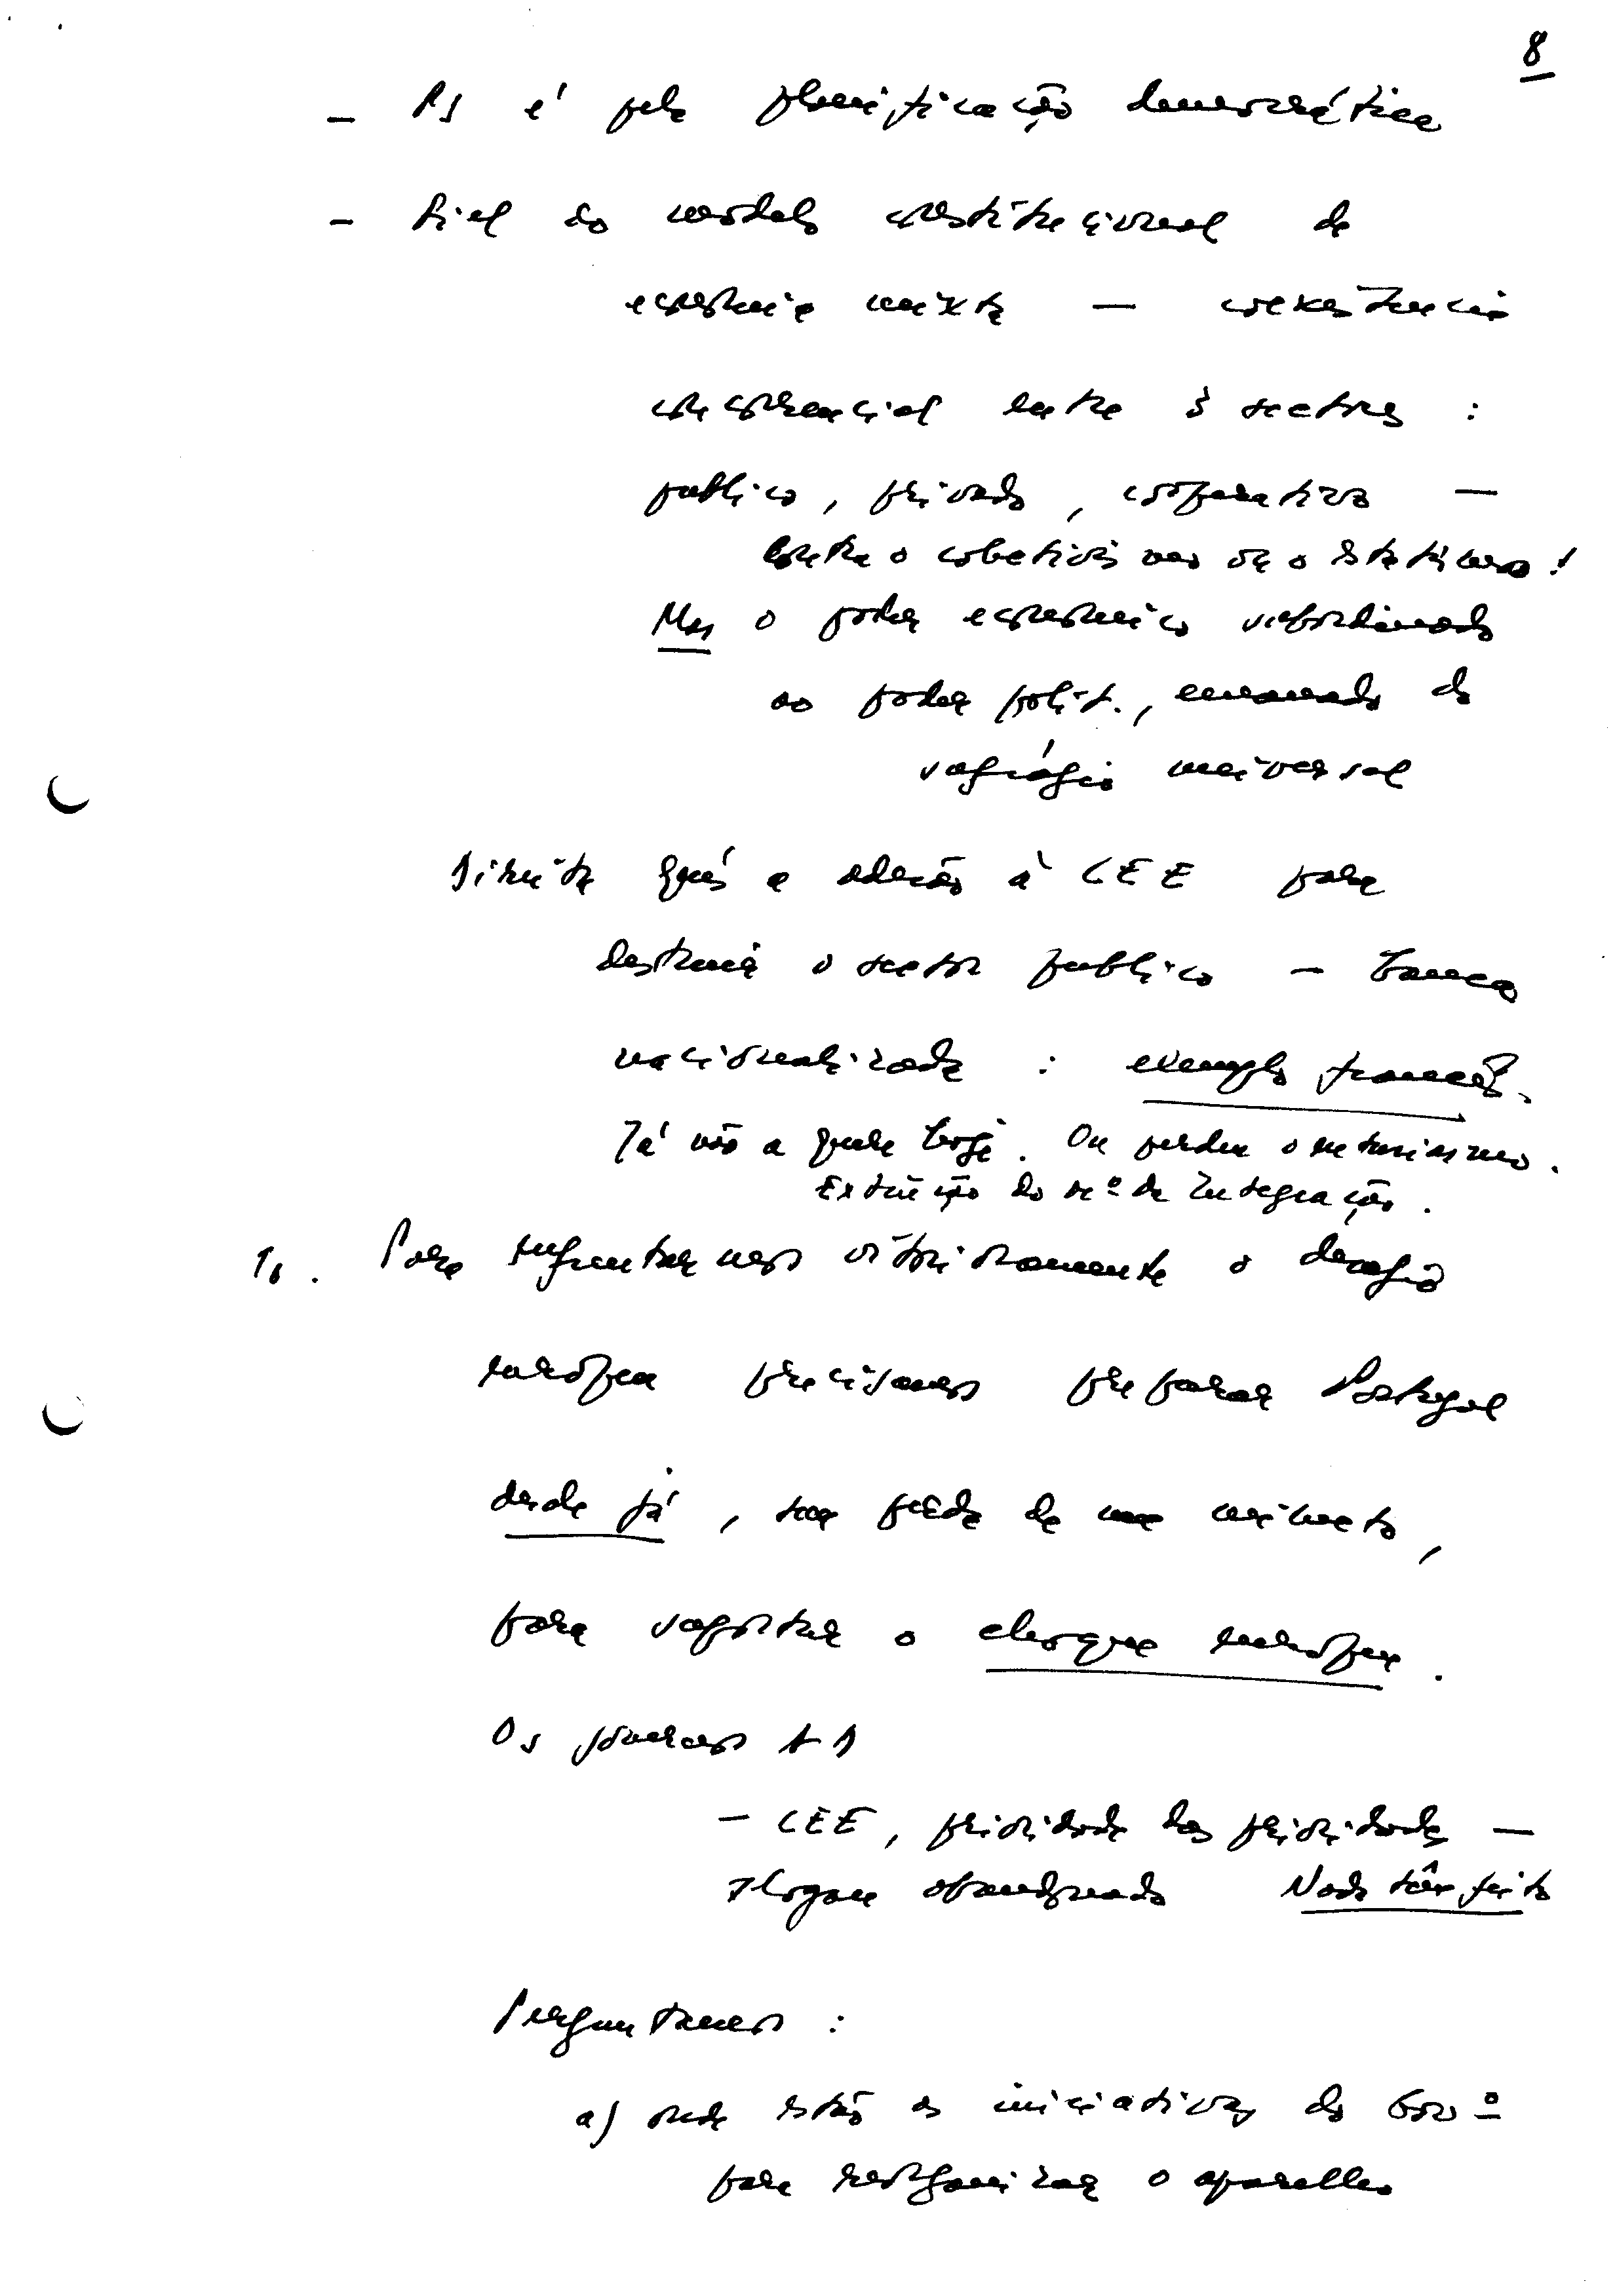 8
- PS é pela planificação democrática
- Fiel ao modelo constitucional de
economia mixta — coexistencia
concorrencial entre 3 sectores :
publico, privado, cooperativo —
Contra o colectivismo ou o estatismo !
Mas o poder economico subordinado
ao poder polit., emanado do
sufrágio universal
Direita quis a adesão à CEE para
destruir o sector publico - banca
nacionalizada : exemplo francês.
Já não a quer hoje. Ou perdeu o entusiasmo.
Extinção do mº da Integração.
16. Para enfrentarmos vitoriosamente o desafio
europeu precisamos preparar Portugal
desde já, sem perda de um minuto,
para suportar o choque europeu.
Os governos AD
- CEE, prioridade das prioridades —
slogan abandonado Nada têm feito
Perguntamos :
a) onde estão as iniciativas do Govº
para reorganizar o aparelho